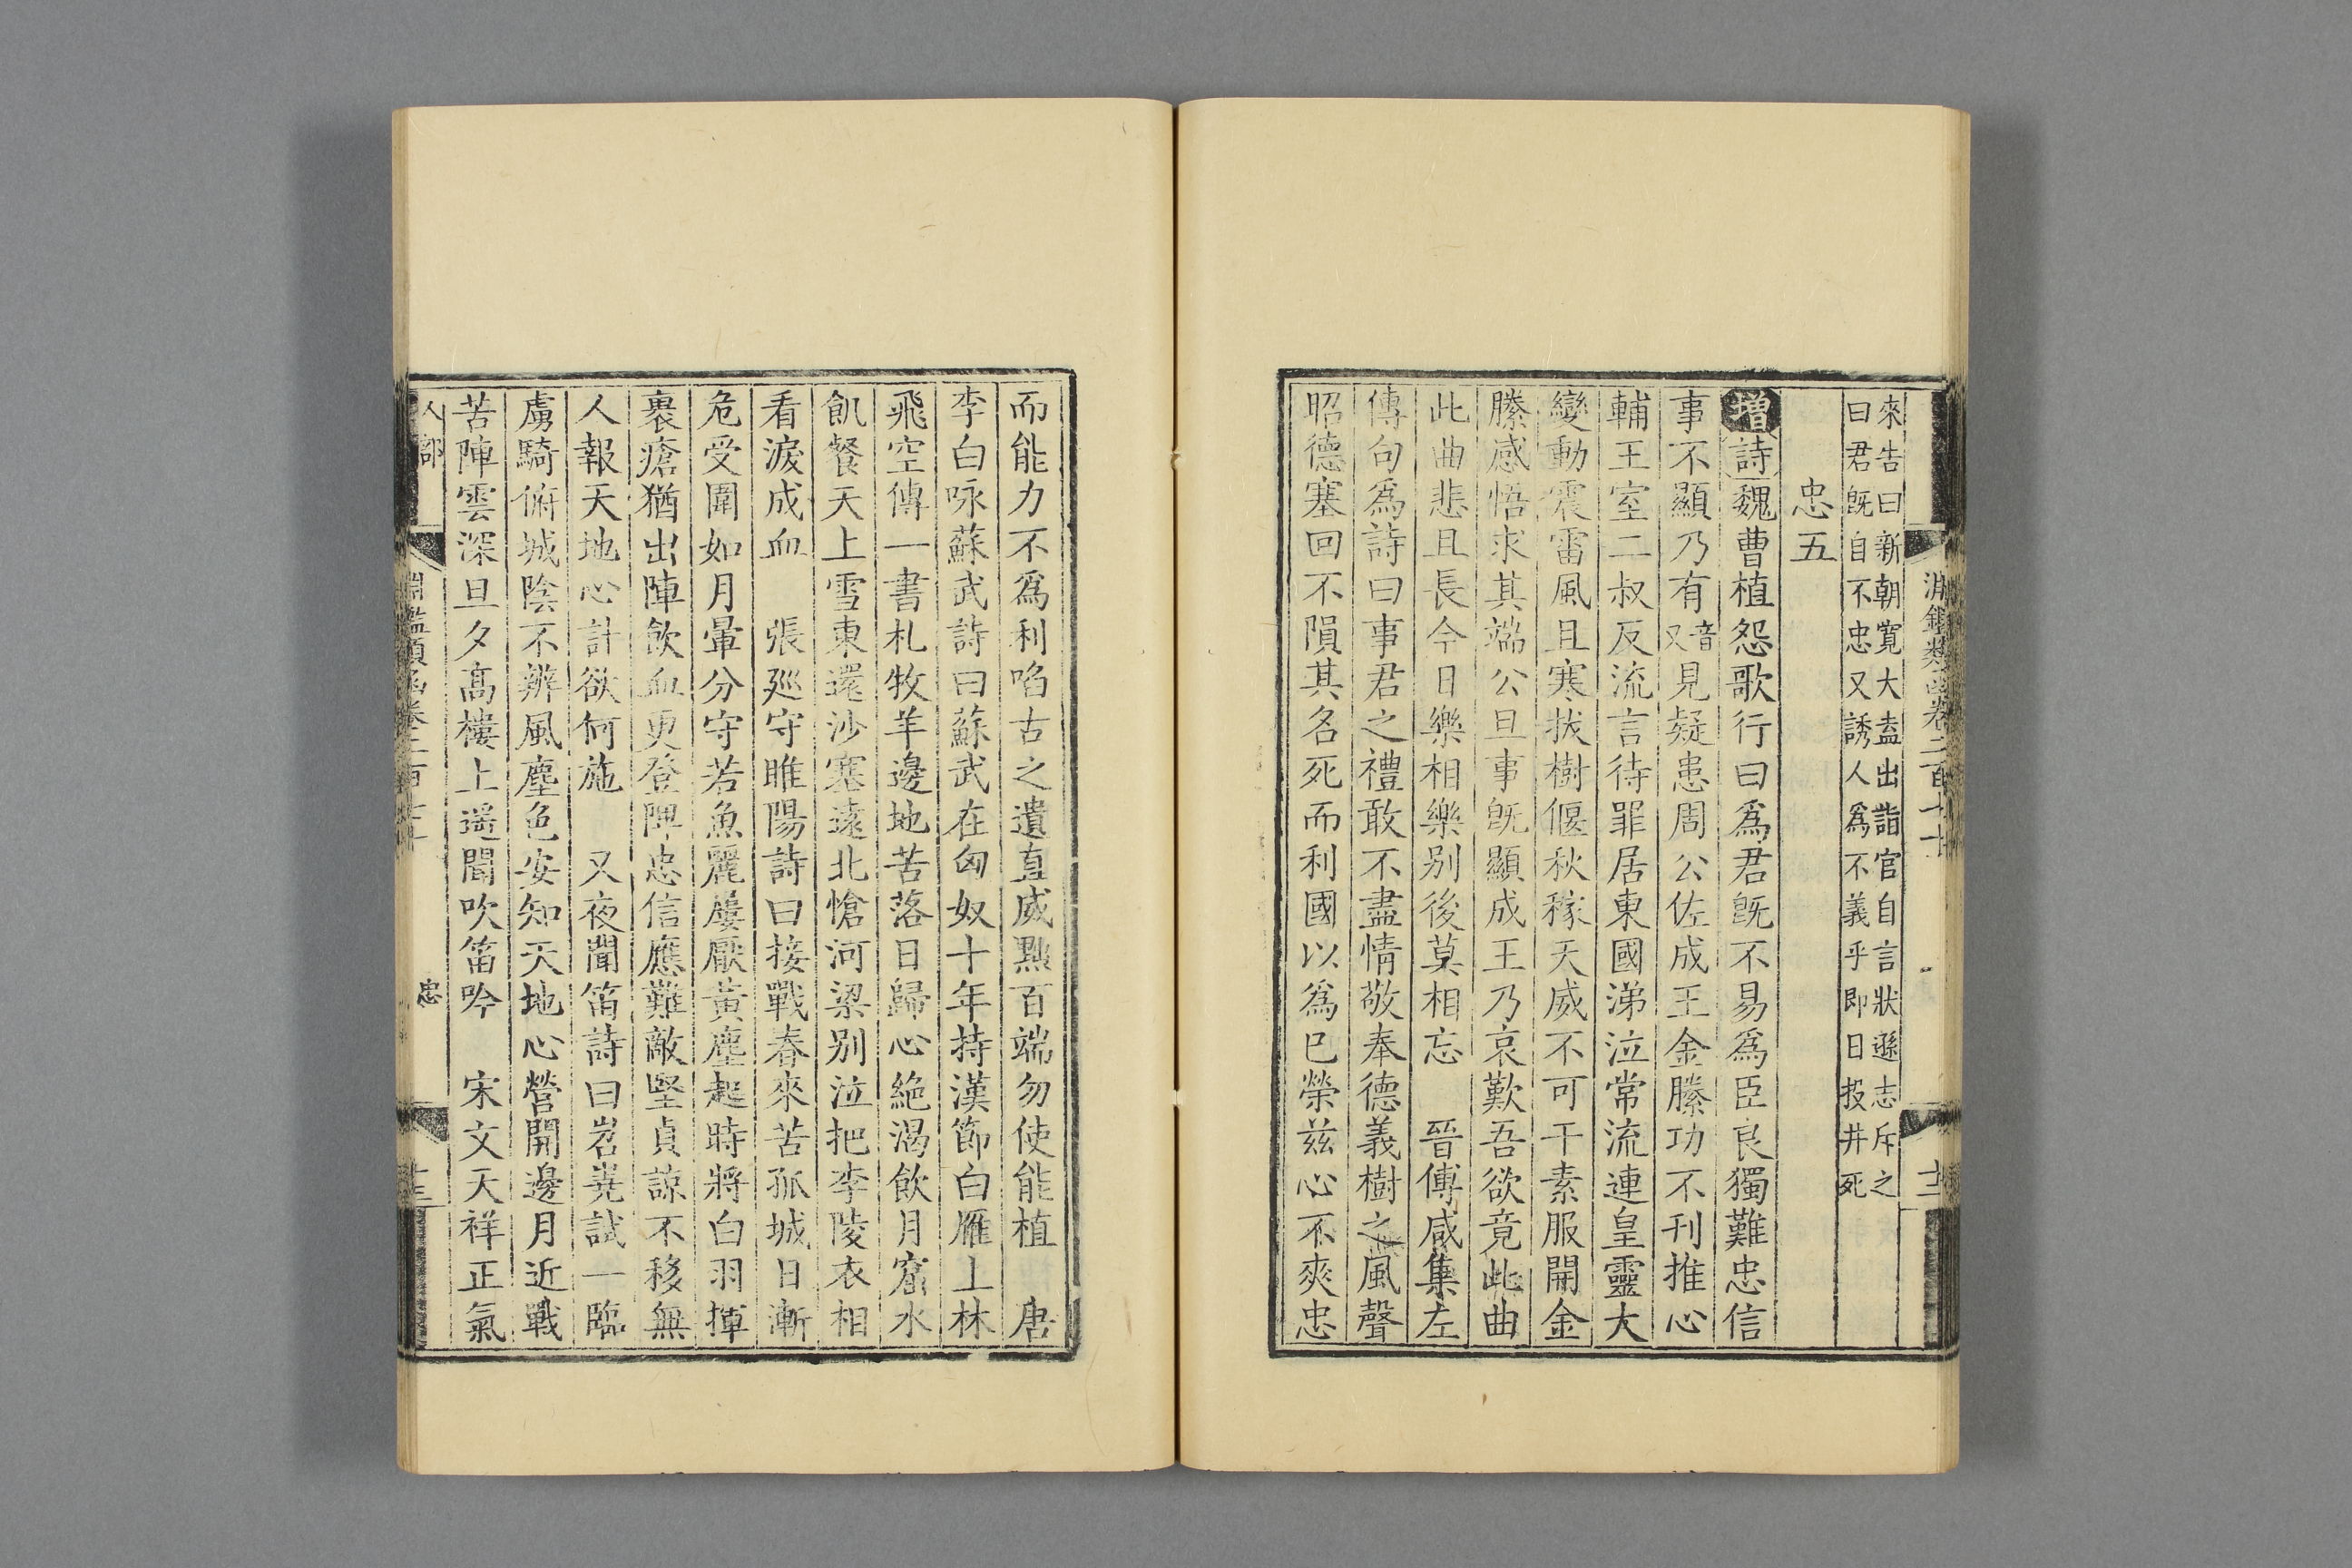 來告曰新朝寛大盍出詣官自言狀遜志斥之
曰君旣自不忠又誘人爲不義乎即日投井死
忠五
增詩魏曹植怨歌行曰爲君旣不易爲臣良獨難忠信
事不顯乃有又音見疑患周公佐成王金縢功不刊推心
輔王室二叔反流言待罪居東國涕泣常流連皇靈大
變動震雷風且寒拔樹偃秋稼天威不可干素服開金
縢感悟求其端公旦事旣顯成王乃哀歎吾欲竟此曲
此曲悲且長今日樂相樂别後莫相忘　晉傅咸集左
傳句爲詩曰事君之禮敢不盡情敬奉德義樹之風聲
昭德塞回不隕其名死而利國以爲已榮兹心不爽忠
而能力不爲利諂古之遺直威黜百端勿使能植　唐
李白咏蘇武詩曰蘇武在匈奴十年持漢節白雁上林
飛空傳一書札牧羊邊地苦落日歸心絶渴飲月窟水
飢餐天上雪東還沙塞遠北愴河梁别泣把李陵衣相
看淚成血　張廵守睢陽詩曰接戰春來苦孤城日漸
危受圍如月暈分守若魚麗屢厭黃塵起時將白羽揮
裹瘡猶出陣飲血更登陴忠信應難敵堅貞諒不移無
人報天地心計欲何施　又夜聞笛詩曰岧嶤試一臨
虜騎俯城陰不辨風塵色安知天地心營開邊月近戰
苦陣雲深旦夕高樓上遥聞吹笛吟　宋文天祥正氣
人部
淵鑑類函卷二百七十
忠